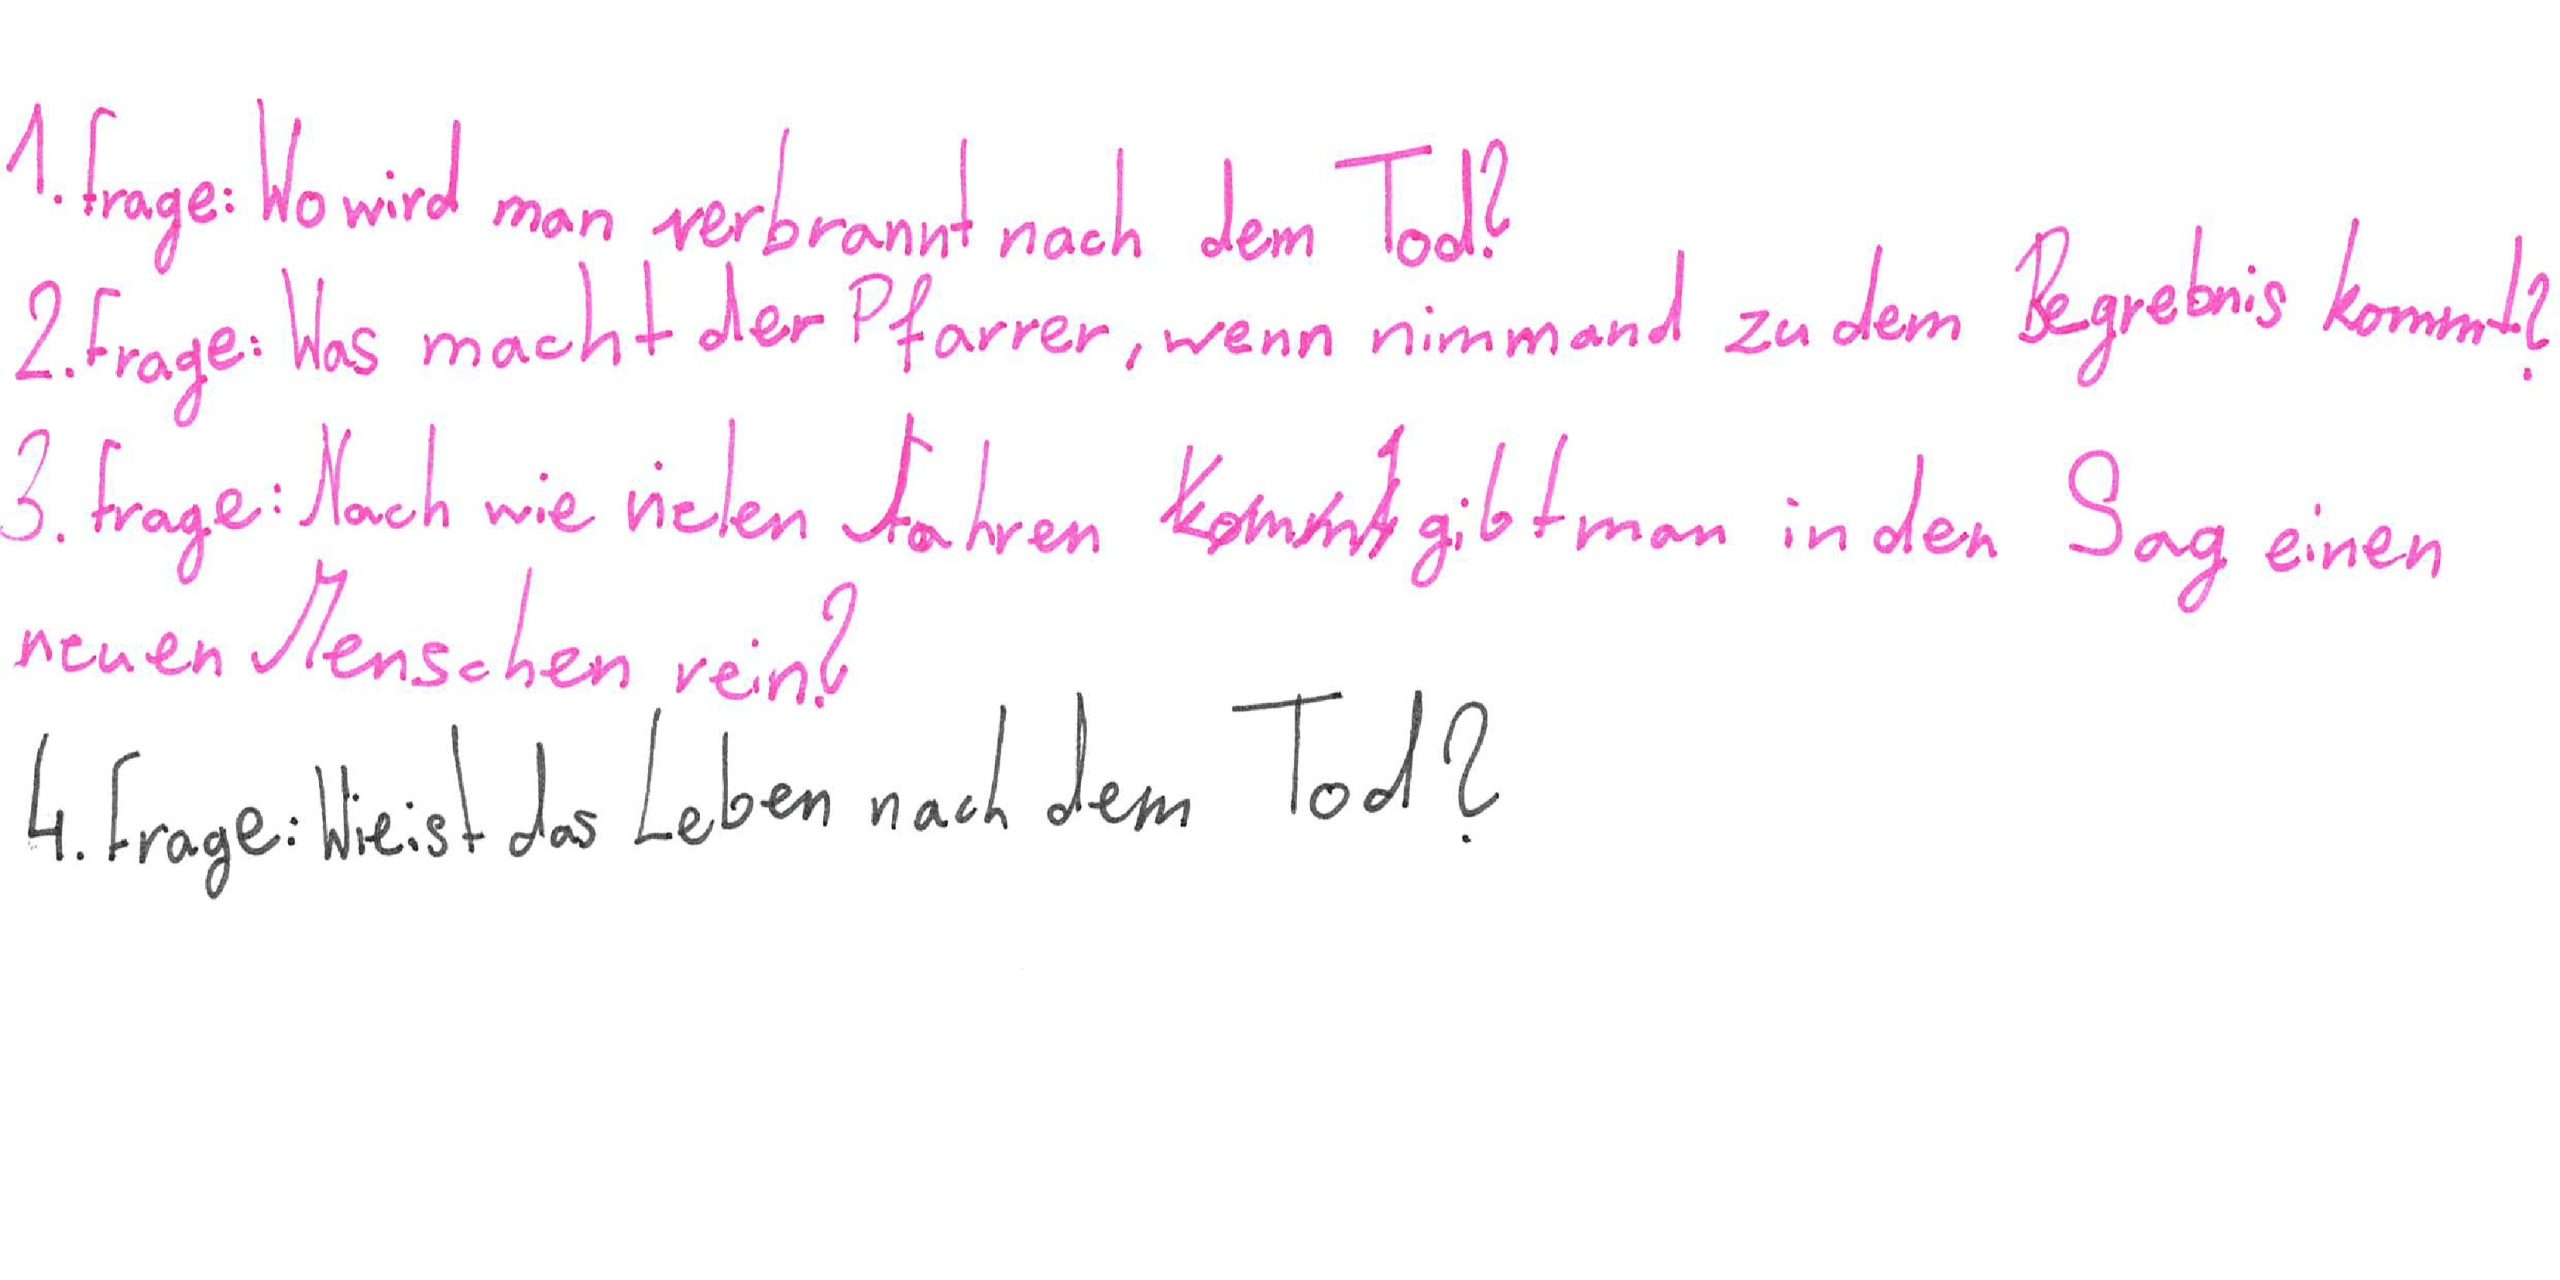 1. Frage: Wo wird man verbrannt nach dem Tod?
2. Frage: Was macht der Pfarrer, wenn nimmand zu dem Begrebnis kommt?
3. Frage: Nach wie vielen Jahren kommt gibt man in den Sag einen
neuen Menschen rein?
4. Frage: Wie ist das Leben nach dem Tod?